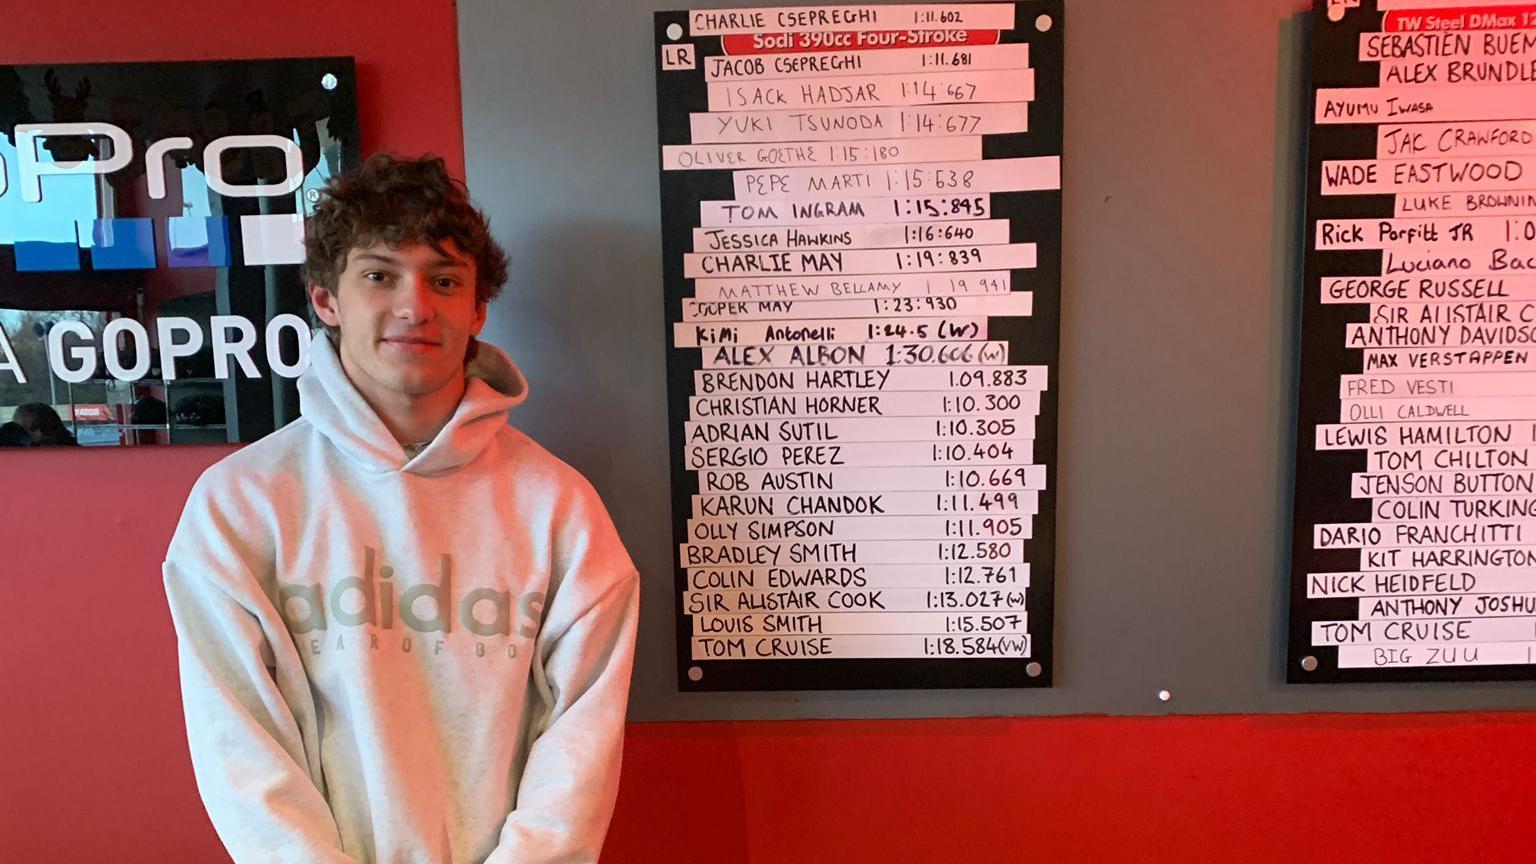 Pro
GOPRO
adidas
CHARLIE CSEPREGHI 1:11.602
Sodi 390cc Four-Stroke
LR
JACOB CSEPREGHI 1:11.681
ISACK HADJAR 1:14:667
YUKI TSUNODA 1:14:677
OLIVER GOETHE 1:15:180
PEPE MARTI 1:15:638
TOM INGRAM 1:15:845
JESSICA HAWKINS 1:16:640
CHARLIE MAY 1:19:839
MATTHEW BELLAMY 1:19 941
COOPER MAY 1:23:930
KiMi Antonelli 1:24.5 (W)
ALEX ALBON 1:30.606 (W)
BRENDON HARTLEY 1.09.883
CHRISTIAN HORNER 1:10.300
ADRIAN SUTIL 1:10.305
SERGIO PEREZ 1:10.404
ROB AUSTIN 1:10.669
KARUN CHANDOK 1:11.499
OLLY SIMPSON 1:11.905
BRADLEY SMITH 1:12.580
COLIN EDWARDS 1:12.761
SIR ALISTAIR COOK 1:13.027(W)
LOUIS SMITH 1:15.507
TOM CRUISE 1:18.584(VW)
TW Steel DMax
SEBASTIEN
ALEX BRUNDLE
AYUMU IWASA
JAK CRAWFORD
WADE EASTWOOD
LUKE
Rick Parfitt JR
Luciano
GEORGE RUSSELL
SIR ALISTAIR
ANTHONY
MAX VERSTAPPEN
FRED VESTI
OLLI CALDWELL
LEWIS HAMILTON
TOM CHILTON
JENSON BUTTON
COLIN
DARIO FRANCHITTI
KIT HARRINGTON
NICK HEIDFELD
ANTHONY
TOM CRUISE
BIG ZUU